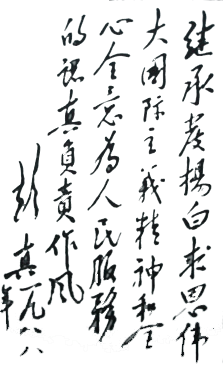 继承发扬白求恩伟
大国际主义精神和全
心全意为人民服务
的认真负责作风
彭真一九八八
年